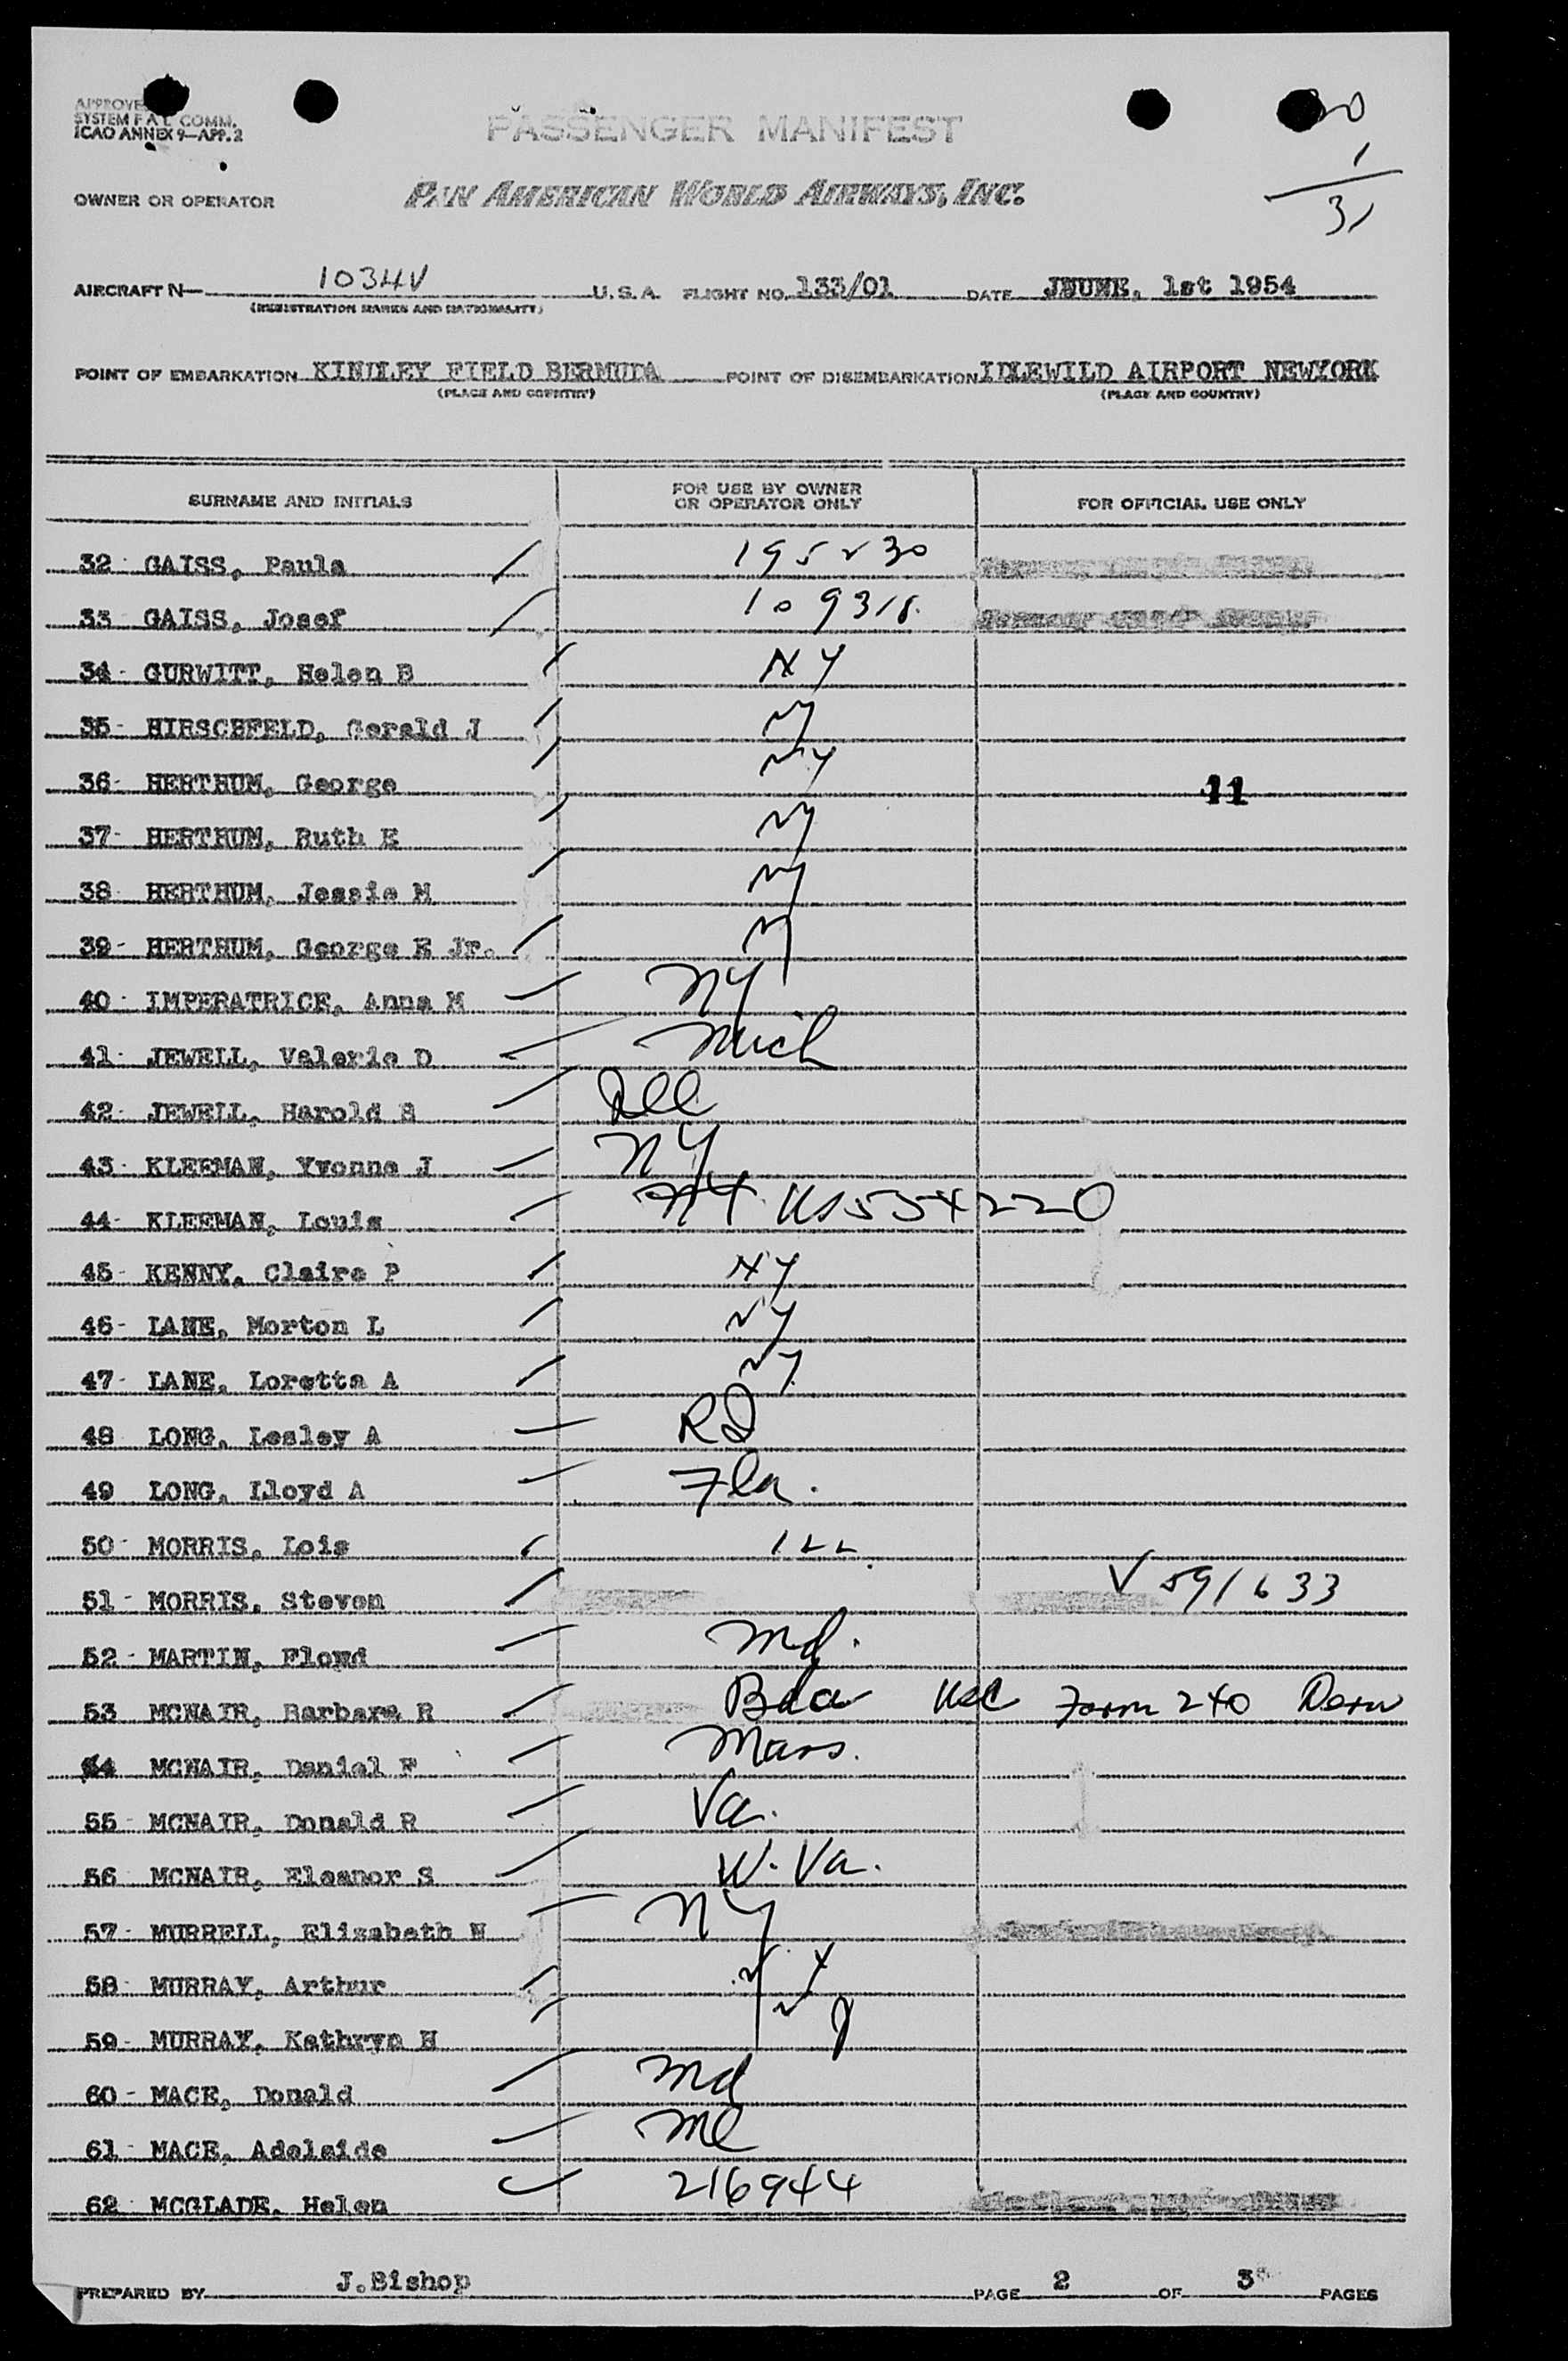 APPROVE
SYSTEM F A L COMM.
ICAO ANNEX 9—APP. 2
PASSENGER MANIFEST
30
1
31
OWNER OR OPERATOR PAN AMERICAN WORLD AIRWAYS, INC.
AIRCRAFT N— 1034V U. S. A. FLIGHT NO. 133/01 DATE JUUNE, 1st 1954
(REGISTRATION MARKS AND NATIONALITY)
POINT OF EMBARKATION KINDLEY FIELD BERMUDA POINT OF DISEMBARKATION IDLEWILD AIRPORT NEWYORK
(PLACE AND COUNTRY) (PLACE AND COUNTRY)
SURNAME AND INITIALS FOR USE BY OWNER OR OPERATOR ONLY FOR OFFICIAL USE ONLY
32 - GAISS, Paula 195230
33 GAISS, Josef 109318.
34 - GURWITT, Helen B NY
35 - HIRSCHFELD, Gerald J NY
36 - HERTHUM, George NY 11
37 - HERTHUM, Ruth E NY
38 - HERTHUM, Jessie M NY
39 - HERTHUM, George E Jr. NY
40 - IMPERATRICE, Anna M NY
41 - JEWELL, Valerie D Mich
42 - JEWELL, Harold S Ill
43 - KLEEMAN, Yvonne J NY
44 - KLEEMAN, Louis NY US554220
45 - KENNY, Claire P NY
46 - LANE, Morton L NY
47 - LANE, Loretta A NY
48 LONG, Lesley A RI
49 LONG, Lloyd A Fla.
50 - MORRIS, Lois ILL.
51 - MORRIS, Steven V 591633
52 - MARTIN, Floyd Md.
53 MCNAIR, Barbara R Bda USC Form 240
54 MCNAIR, Daniel F Mass.
55 - MCNAIR, Donald R Va.
56 MCNAIR, Eleanor S W. Va.
57 - MURRELL, Elizabeth N NY
58 - MURRAY, Arthur NY
59 - MURRAY, Kathryn H NY
60 - MACE, Donald Md
61 - MACE, Adelaide Me
62 - MCGLADE, Helen 216944
PREPARED BY J.Bishop PAGE 2 OF 3 PAGES